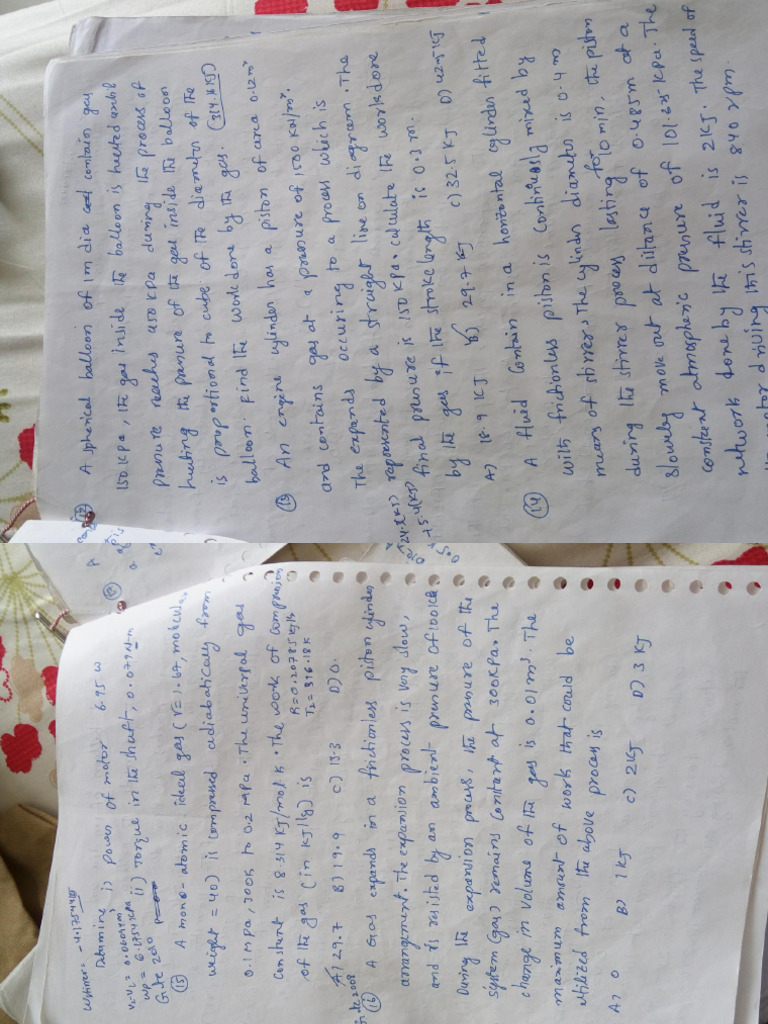 (12) A spherical balloon of 1m dia contain gas
150 kPa, the gas inside the balloon is heated until
pressure reaches 450 kPa during the process of
heating the pressure of the gas inside the balloon
is proportional to cube of the diameter of the
balloon. Find the workdone by the gas. (314.1 KJ)
(13) An engine cylinder has a piston of area 0.12m²
and contains gas at a pressure of 1500 KN/m².
The expands occuring to a process which is
represented by a straight line on diagram. The
final pressure is 150 kPa. calculate the workdone
by the gas if the stroke length is 0.3 m.
A) 18.9 KJ B) 29.7 KJ C) 32.5 KJ D) 42.5 KJ
(14) A fluid contain in a horizontal cylinder fitted
with frictionless piston is continuously mixed by
means of stirrer, The cylinder diameter is 0.4 m
during the stirrer process lasting for 10 min, the piston
slowly move out at distance of 0.485m at a
constant atmospheric pressure of 101.325 KPa. The
network done by the fluid is 2KJ. The speed of
motor driving this stirrer is 840 rpm.
Wstirrer = -4.1754
Determine i) power of motor 6.95 w
ii) torque in the shaft, 0.079 N-m
Gate 2010
(15) A mono-atomic ideal gas (r=1.67, molecular
weight = 40) is compressed adiabatically from
0.1 MPa, 300K to 0.2 MPa. The universal gas
constant is 8.314 KJ/mol k. The work of compression
of the gas (in KJ/kg) is
R=0.20785 KJ/k
T₂ = 396.18 K
A) 29.7 B) 19.9 C) 13.3 D) 0.
Gate 2008
(16) A Gas expands in a frictionless piston cylinder
arrangement. The expansion process is very slow,
and is resisted by an ambient pressure of 100 kPa
During the expansion process, the pressure of the
system (gas) remains constant at 300 KPa. The
change in volume of the gas is 0.01 m³. The
maximum amount of work that could be
utilized from the above process is
A) 0 B) 1 KJ C) 2 KJ D) 3 KJ